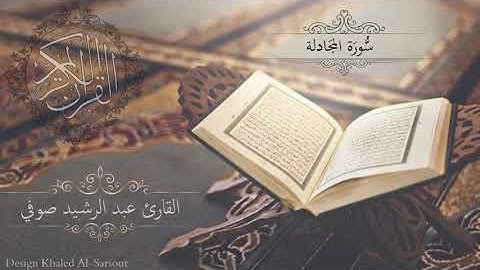 سُورَة المجَادلة
القرآن الكريم
القارئ عبد الرشيد صوفي
Design Khaled Al-Sarsour